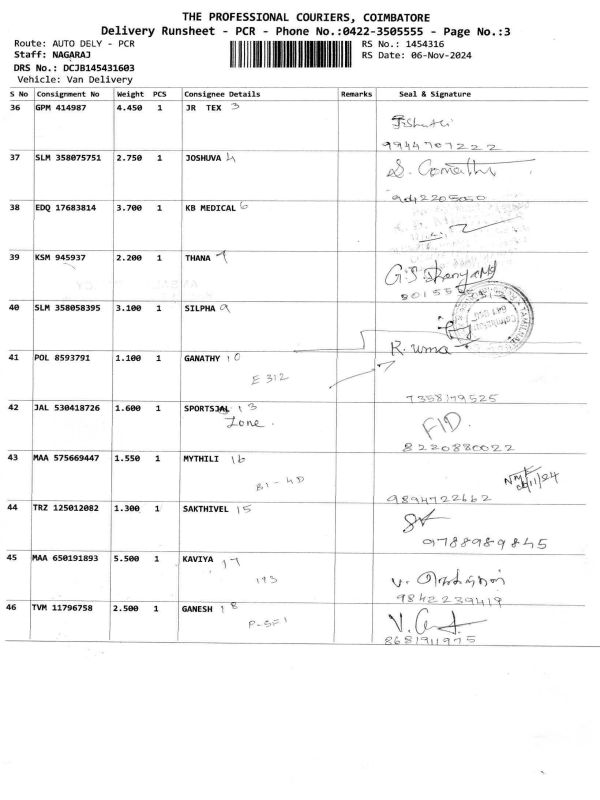 THE PROFESSIONAL COURIERS, COIMBATORE
Delivery Runsheet - PCR - Phone No.:0422-3505555 - Page No.:3
Route: AUTO DELY - PCR RS No.: 1454316
Staff: NAGARAJ RS Date: 06-Nov-2024
DRS No.: DCJB145431603
Vehicle: Van Delivery
S No Consignment No Weight PCS Consignee Details Remarks Seal & Signature
36 GPM 414987 4.450 1 JR TEX 3
9944707222
37 SLM 358075751 2.750 1 JOSHUVA 4
S. Gomathi
9042205050
38 EDQ 17683814 3.700 1 KB MEDICAL 6
39 KSM 945937 2.200 1 THANA 7
40 SLM 358058395 3.100 1 SILPHA 9
R. uma
41 POL 8593791 1.100 1 GANATHY 10
E 312
7358179525
42 JAL 530418726 1.600 1 SPORTSJAL 13
Zone. FID.
8220880022
43 MAA 575669447 1.550 1 MYTHILI 16
B1-4D
9894722662
44 TRZ 125012082 1.300 1 SAKTHIVEL 15
9788989845
45 MAA 650191893 5.500 1 KAVIYA 17
193
9842239419
46 TVM 11796758 2.500 1 GANESH 18
P-SF1
8681911975